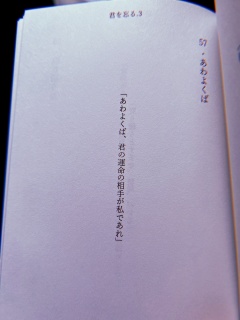 君を忘る.3
57・あわよくば
「あわよくば、君の運命の相手が私であれ」